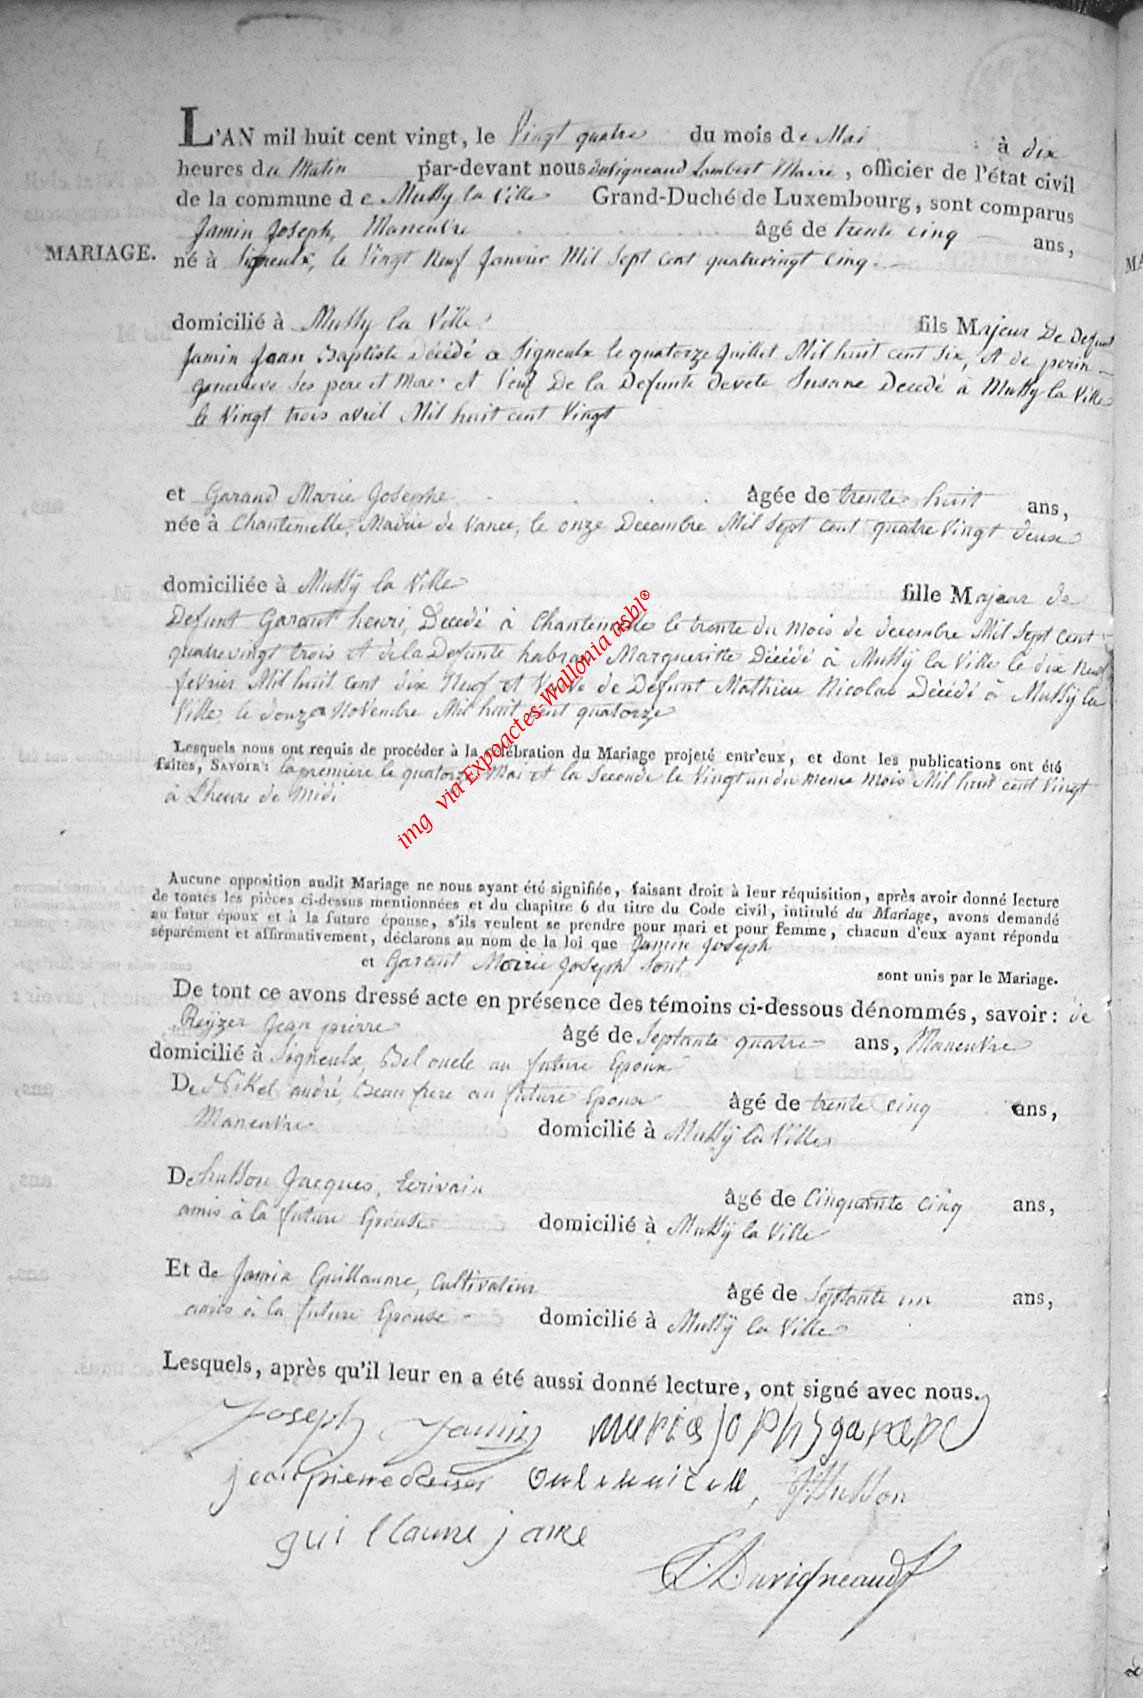 L'AN mil huit cent vingt, le Vingt quatre du mois de Mai à dix
heures du Matin par-devant nous Duvigneaud Lambert Maire, officier de l'état civil
de la commune de Mussy la Ville Grand-Duché de Luxembourg, sont comparus
Jamin Joseph, Maneuvre âgé de trente cinq ans,
MARIAGE.
né à Signeulx, le Vingt Neuf Janvier Mil Sept cent quatrevingt cinq.
domicilié à Mussy la Ville fils Majeur De Defunt
Jamin Jean Baptiste Décédé a Signeulx le quatorze Juillet Mil huit cent six, et de perin
genevieve ses pere et Mere et Veuf De la Defunte Susane Decedé à Mussy la Ville
le Vingt trois avril Mil huit cent Vingt
et Garand Marie Josephe âgée de trente huit ans,
née à Chantemelle, Mairie de Vance, le onze Decembre Mil Sept cent quatre Vingt deux
domiciliée à Mussÿ la Ville fille Majeur de
Defunt Garant henri, Decedé à Chantemelle le trente du Mois de decembre Mil Sept cent
quatrevingt trois et de la Defunte Margueritte Décédé à Mussÿ la Ville le dix Neuf
fevrier Mil huit cent dix Neuf et Veuve de Defunt Mathieu Nicolas Décédé à Mussÿ la
Ville le douze Novembre Mil huit cent quatorze
Lesquels nous ont requis de procéder à la célébration du Mariage projeté entr'eux, et dont les publications ont été
faites, SAVOIR: la premiere le quatorze Mai et la Seconde le Vingt un du meme Mois Mil huit cent Vingt
à L'heure de Midi
img via Expoactes-Wallonia asbl®
Aucune opposition audit Mariage ne nous ayant été signifiée, faisant droit à leur réquisition, après avoir donné lecture
de toutes les pièces ci-dessus mentionnées et du chapitre 6 du titre du Code civil, intitulé du Mariage, avons demandé
au futur époux et à la future épouse, s'ils veulent se prendre pour mari et pour femme, chacun d'eux ayant répondu
séparément et affirmativement, déclarons au nom de la loi que Jamin Joseph
et Garant Marie Joseph Sont sont unis par le Mariage.
De tout ce avons dressé acte en présence des témoins ci-dessous dénommés, savoir: de
Reÿzer Jean pierre âgé de Septante quatre ans, Maneuvre
domicilié à Signeulx, Bel oncle au future Epoux
De Nikel andré, Beau frere au future Epoux âgé de trente cinq ans,
Maneuvre domicilié à Mussÿ la Ville
De husson Jacques, Ecrivain âgé de Cinquante cinq ans,
amis à la future Epouse domicilié à Mussÿ la Ville
Et de Jamin Guillaume, Cultivateur âgé de Septante un ans,
amis à la future Epouse domicilié à Mussÿ la Ville
Lesquels, après qu'il leur en a été aussi donné lecture, ont signé avec nous.
Joseph Jamin
jean pierre J: Husson
guillaume jame
L. Duvigneaud